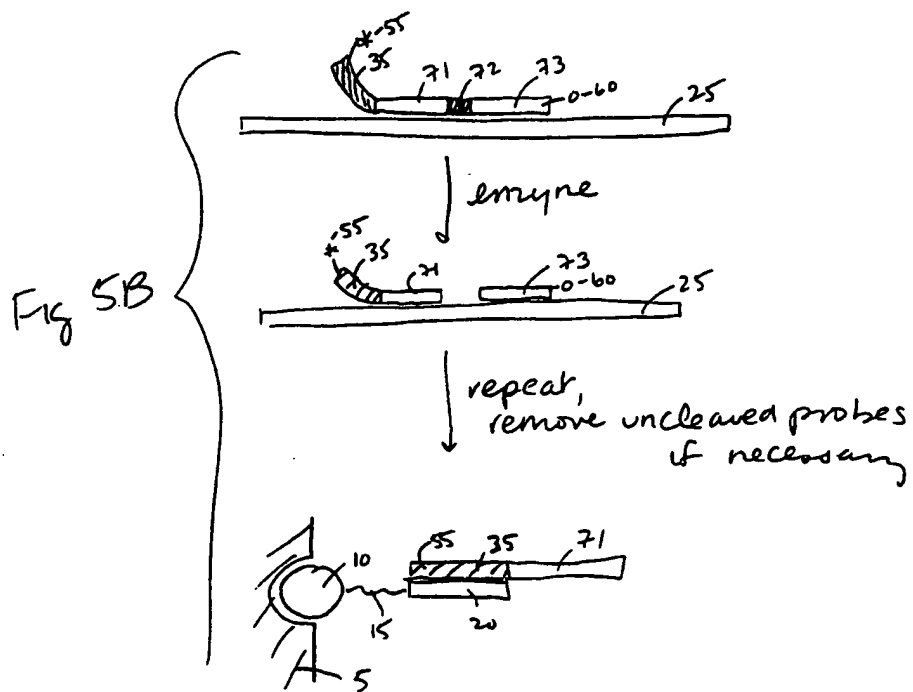 *-55
35
71
72
73
0-60
25
enzyne
*-55
35
71
73
0-60
25
Fig 5B
repeat,
remove uncleaved probes
if necessary
10
55
35
71
15
20
5